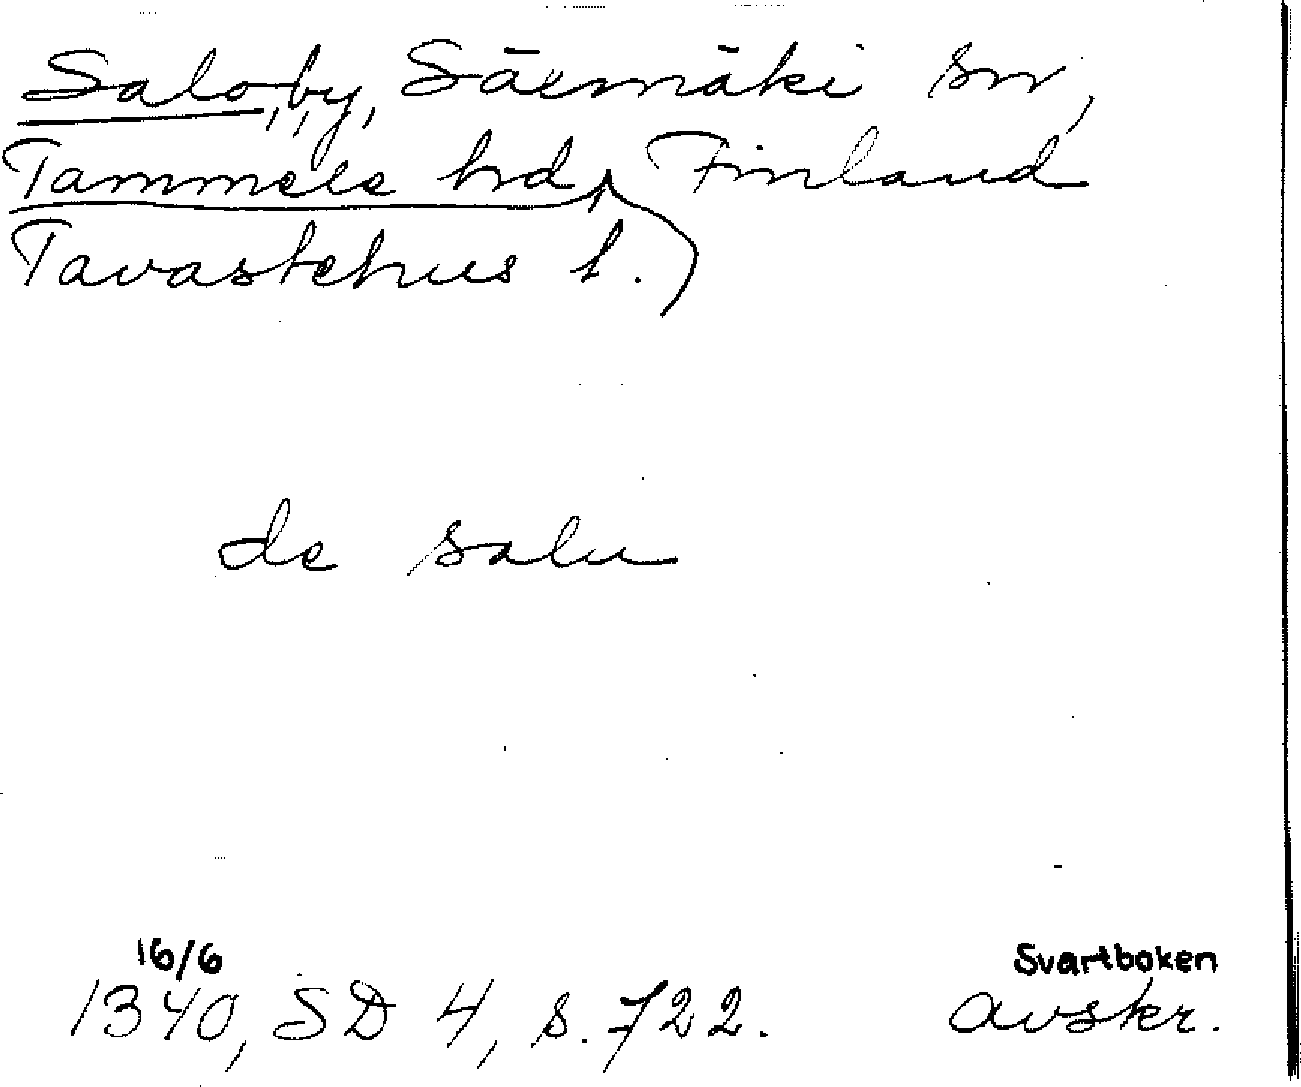 Salo, by, Säxmäki sn,
Tammela hrd, Finland
Tavastehus l.
de salu
16/6 Svartboken
1340, SD 4, s. 722. avskr.